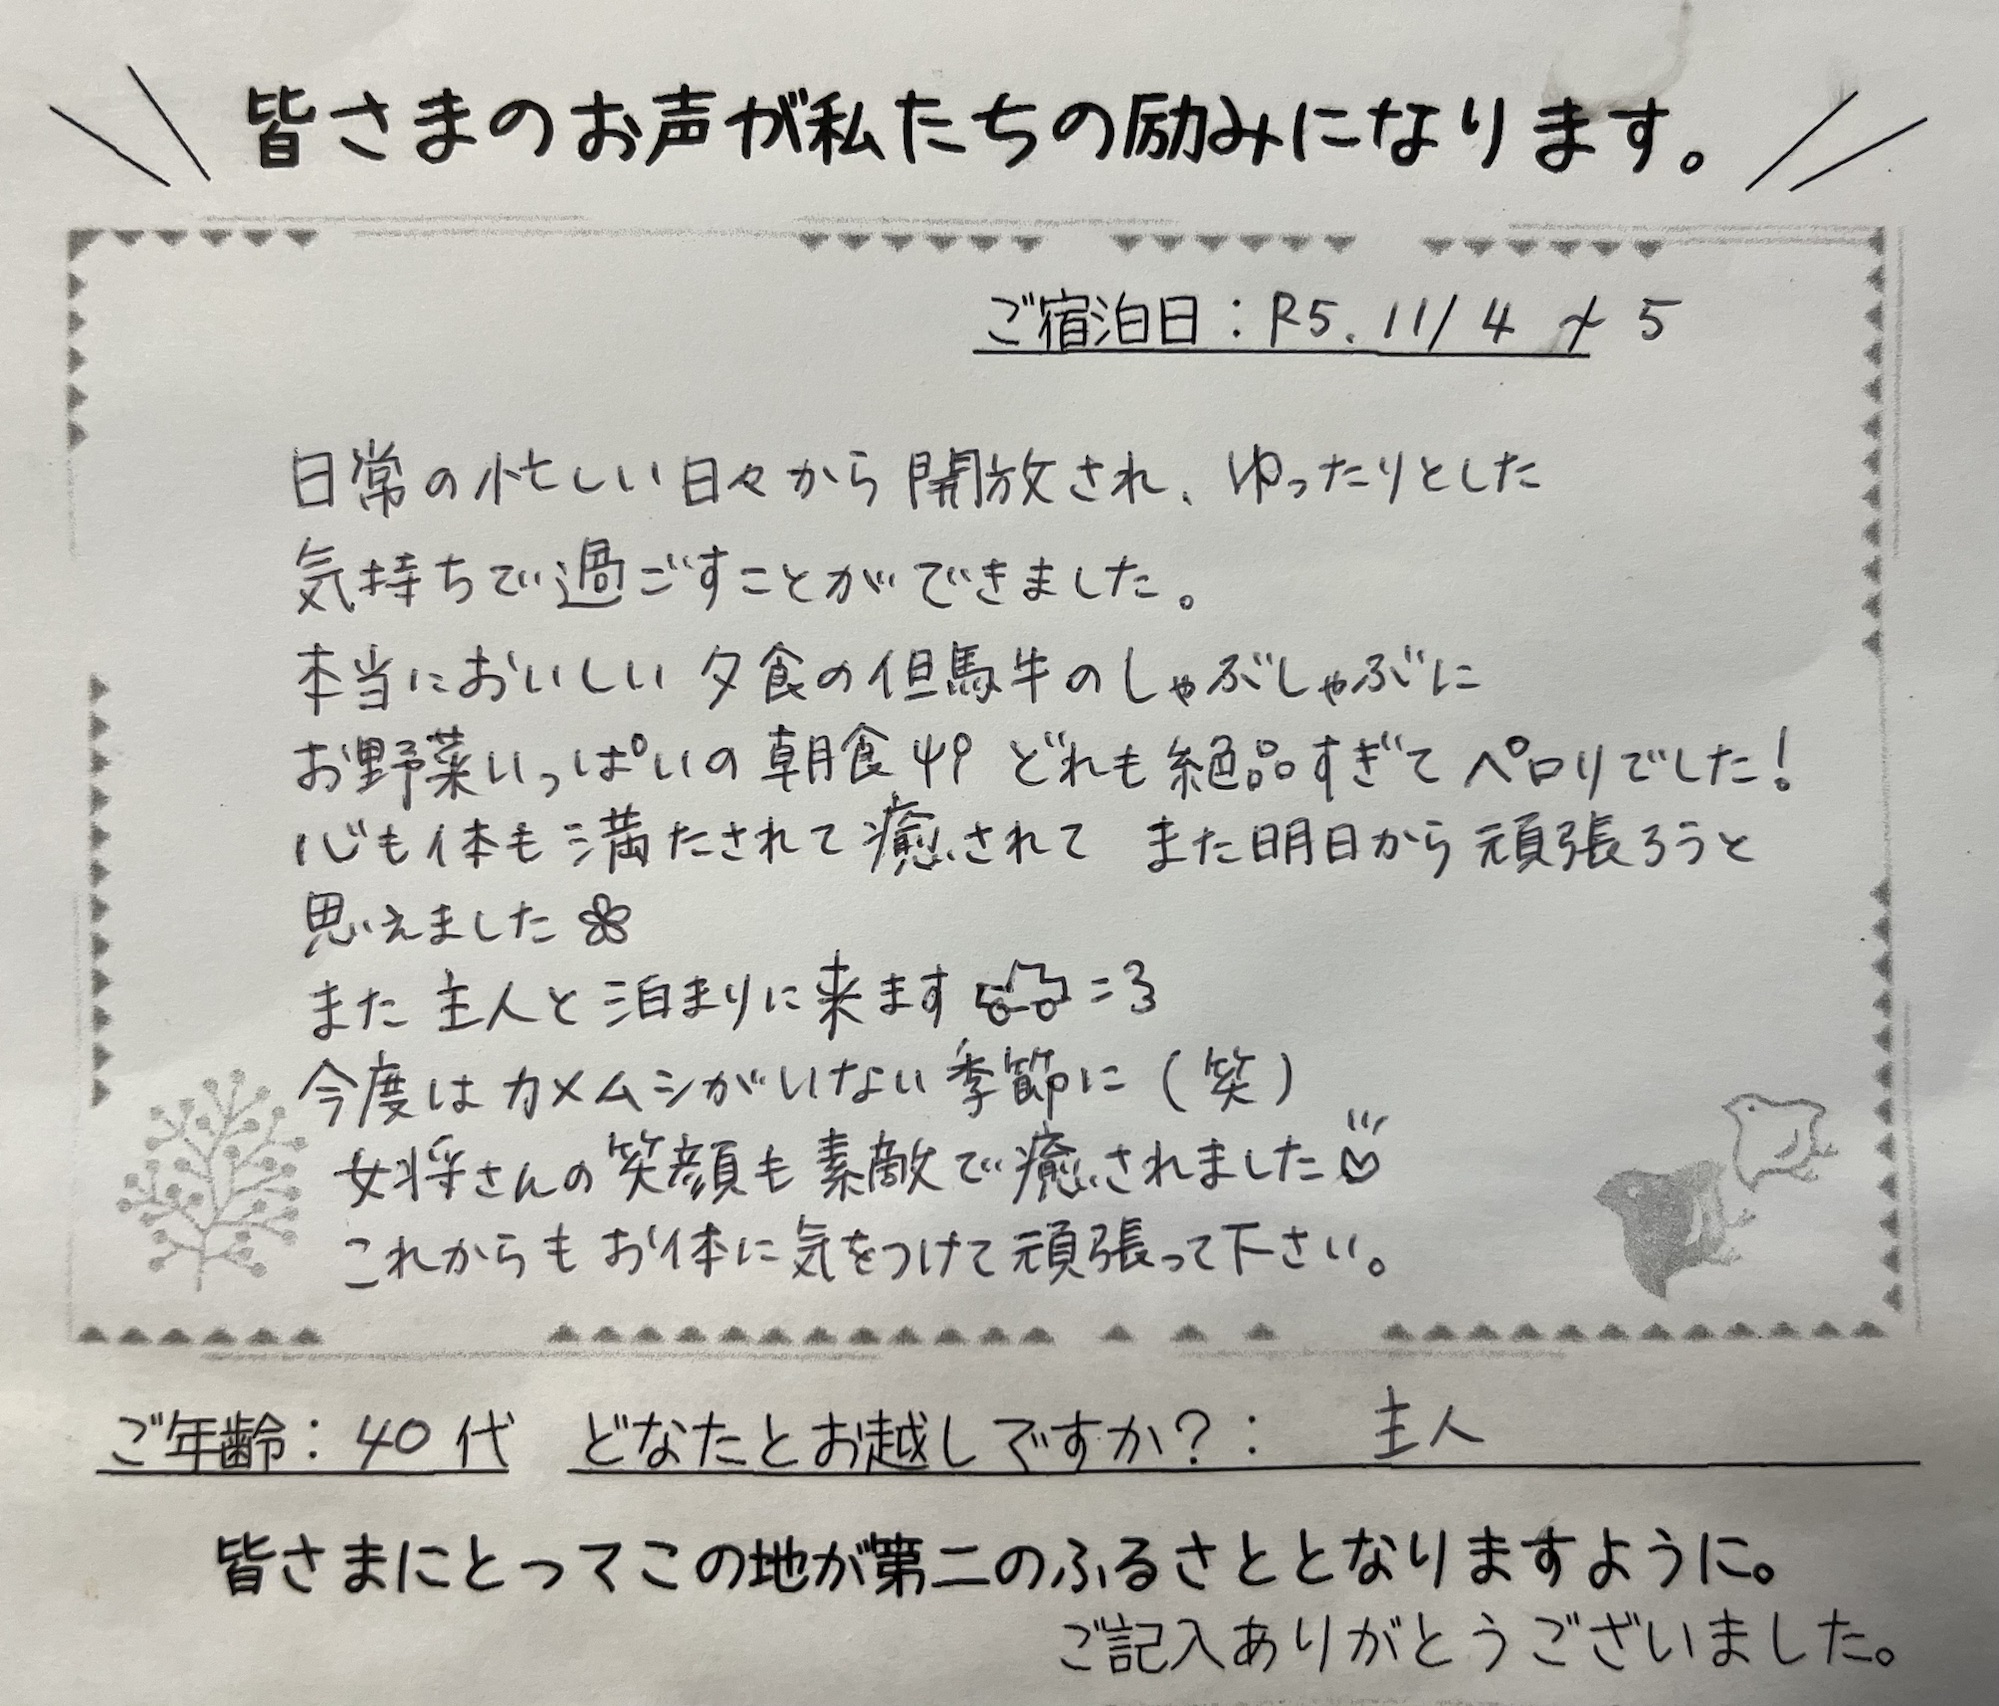 皆さまのお声が私たちの励みになります。
ご宿泊日：R5.11/4〜5
日常の忙しい日々から開放され、ゆったりとした
気持ちで過ごすことができました。
本当においしい夕食の但馬牛のしゃぶしゃぶに
お野菜いっぱいの朝食 どれも絶品すぎてペロリでした！
心も体も満たされて癒されて また明日から頑張ろうと
思えました
また主人と泊まりに来ます =3
今度はカメムシがいない季節に（笑）
女将さんの笑顔も素敵で癒されました
これからもお体に気をつけて頑張って下さい。
ご年齢：40代 どなたとお越しですか？： 主人
皆さまにとってこの地が第二のふるさととなりますように。
ご記入ありがとうございました。